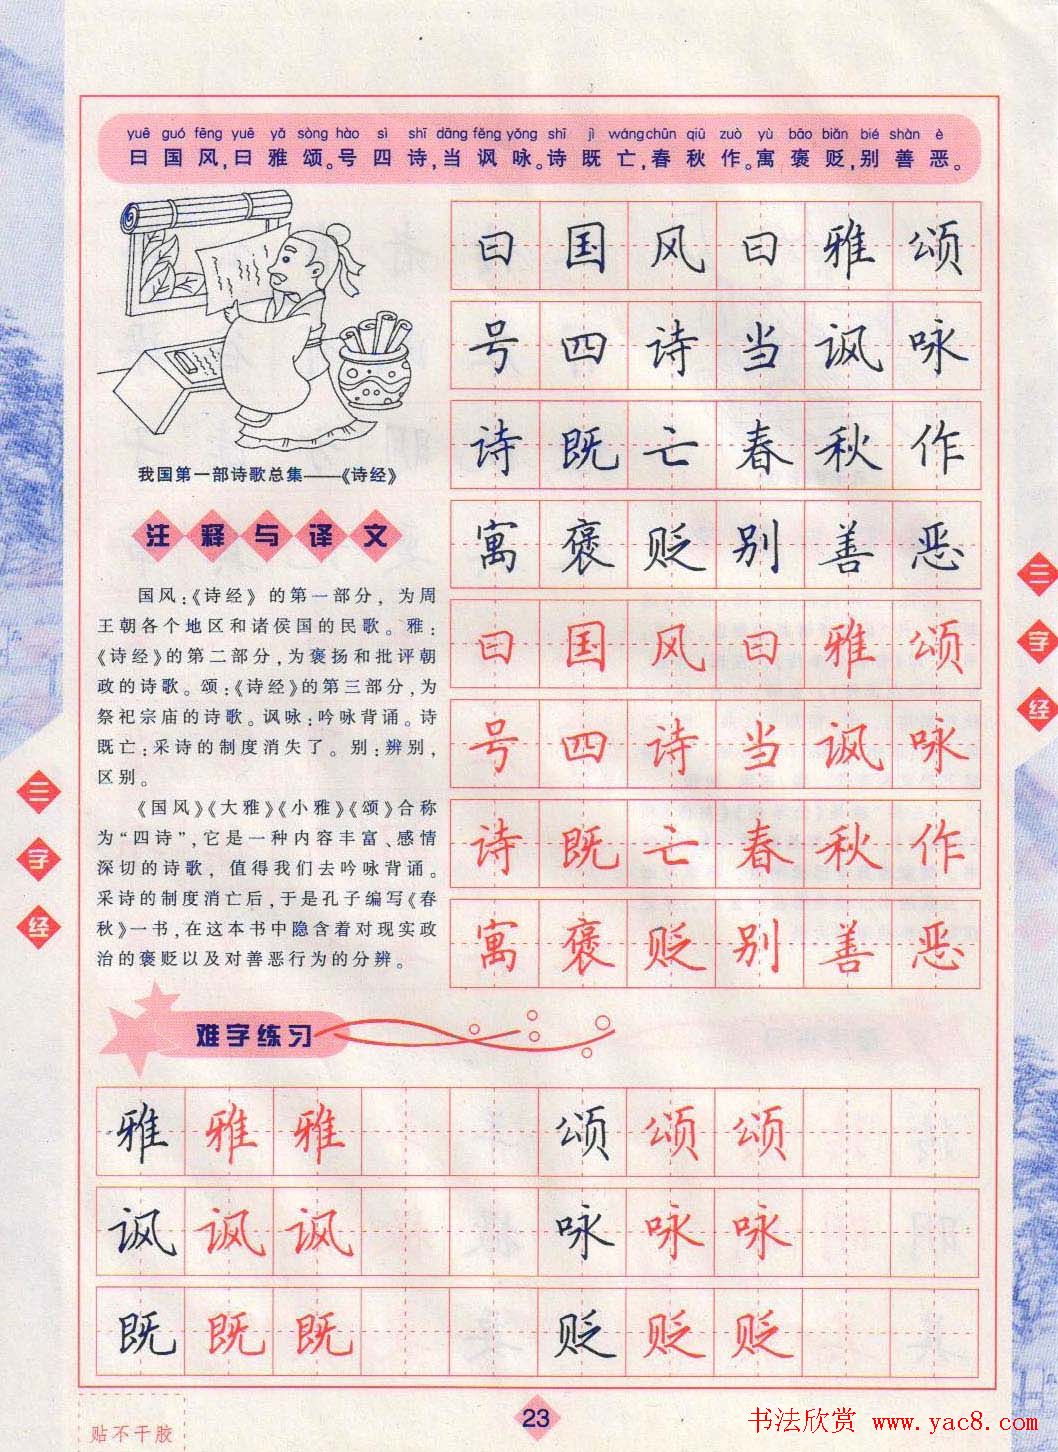 yuē guó fēng yuē yǎ sòng hào sì shī dāng fěng yǒng shī jì wáng chūn qiū zuò yù bāo biǎn bié shàn è
曰国风,曰雅颂。号四诗,当讽咏。诗既亡,春秋作。寓褒贬,别善恶。
我国第一部诗歌总集——《诗经》
注释与译文
国风:《诗经》的第一部分,为周
王朝各个地区和诸侯国的民歌。雅:
《诗经》的第二部分,为褒扬和批评朝
政的诗歌。颂:《诗经》的第三部分,为
祭祀宗庙的诗歌。讽咏:吟咏背诵。诗
既亡:采诗的制度消失了。别:辨别,
区别。
《国风》《大雅》《小雅》《颂》合称
为“四诗”,它是一种内容丰富、感情
深切的诗歌,值得我们去吟咏背诵。
采诗的制度消亡后,于是孔子编写《春
秋》一书,在这本书中隐含着对现实政
治的褒贬以及对善恶行为的分辨。
曰国风曰雅颂
号四诗当讽咏
诗既亡春秋作
寓褒贬别善恶
曰国风曰雅颂
号四诗当讽咏
诗既亡春秋作
寓褒贬别善恶
三字经
三字经
难字练习
雅雅雅 颂颂颂
讽讽讽 咏咏咏
既既既 贬贬贬
贴不干胶
23
书法欣赏 www.yac8.com